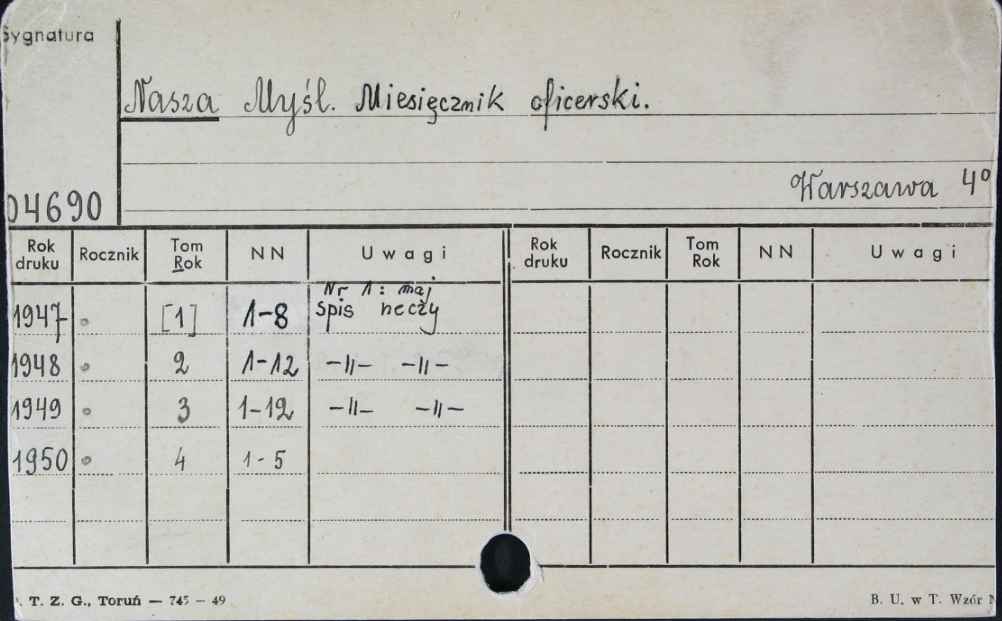 Sygnatura
Nasza Myśl. Miesięcznik oficerski.
Warszawa 4º
04690
Rok druku Rocznik Tom Rok NN Uwagi Rok druku Rocznik Tom Rok NN Uwagi
Nr 1: maj
1947 [1] 1-8 Spis rzeczy
1948 2 1-12 -"- -"-
1949 3 1-12 -"- -"-
1950 4 1-5
T. Z. G., Toruń — 745 — 49 B. U. w T. Wzór